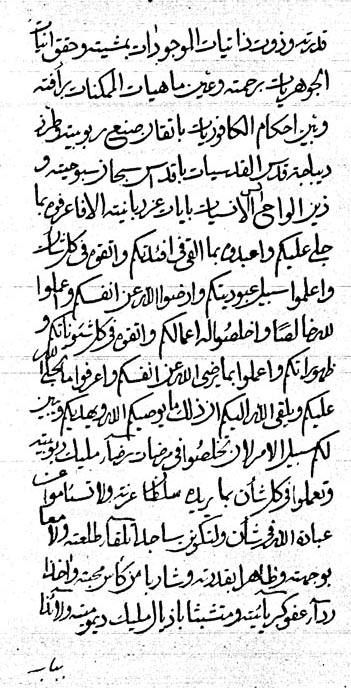 قدرته وذوت ذاتيات الموجودات بمشيته وحقق انيات
الجوهريات برحمته وعين ماهيات الممكنات برأفته
وبين احكام الكافوريات باتقان صنع ربوبيته وطرز
ديباجة قدس القدسيات باقداس سبحان سبوحيته و
زين الواح الانسيات بايات عز ربانيته الا فاعرفوه بما
تجلى عليكم واعبدوه بما القى فى افئدتكم واتقوه فى كل شأن
واعلموا سبيل عبوديتكم وارضوا الله عن انفسكم واعملوا
لله خالصًا واخلصوا له اعمالكم واتقوه فى كل شئوناتكم و
ظهوراتكم واعلموا بما يرضى الله عن انفسكم واعرفوا ما تجلى الله
عليكم ويلقى الله اليكم اذ ذلك ما يوصيكم الله ويهديكم ويبين
لكم سبيل الامر لان تخلصوا فى مرضات رضاء مليك ربوبيته
وتعملوا فى كل شأن بما يريده سلطان عزته ولا تسئاموا عن
عبادة الله فى شأن ولتكونن ساجدا تلقاء طلعته ولامعا
بوجهته وظاهرا بقدرته وشاربا من كأس محبته واخذا
رداء عفو كبريائيته ومتشبثا باذيال مليك ديموميته ولائذا
بباب